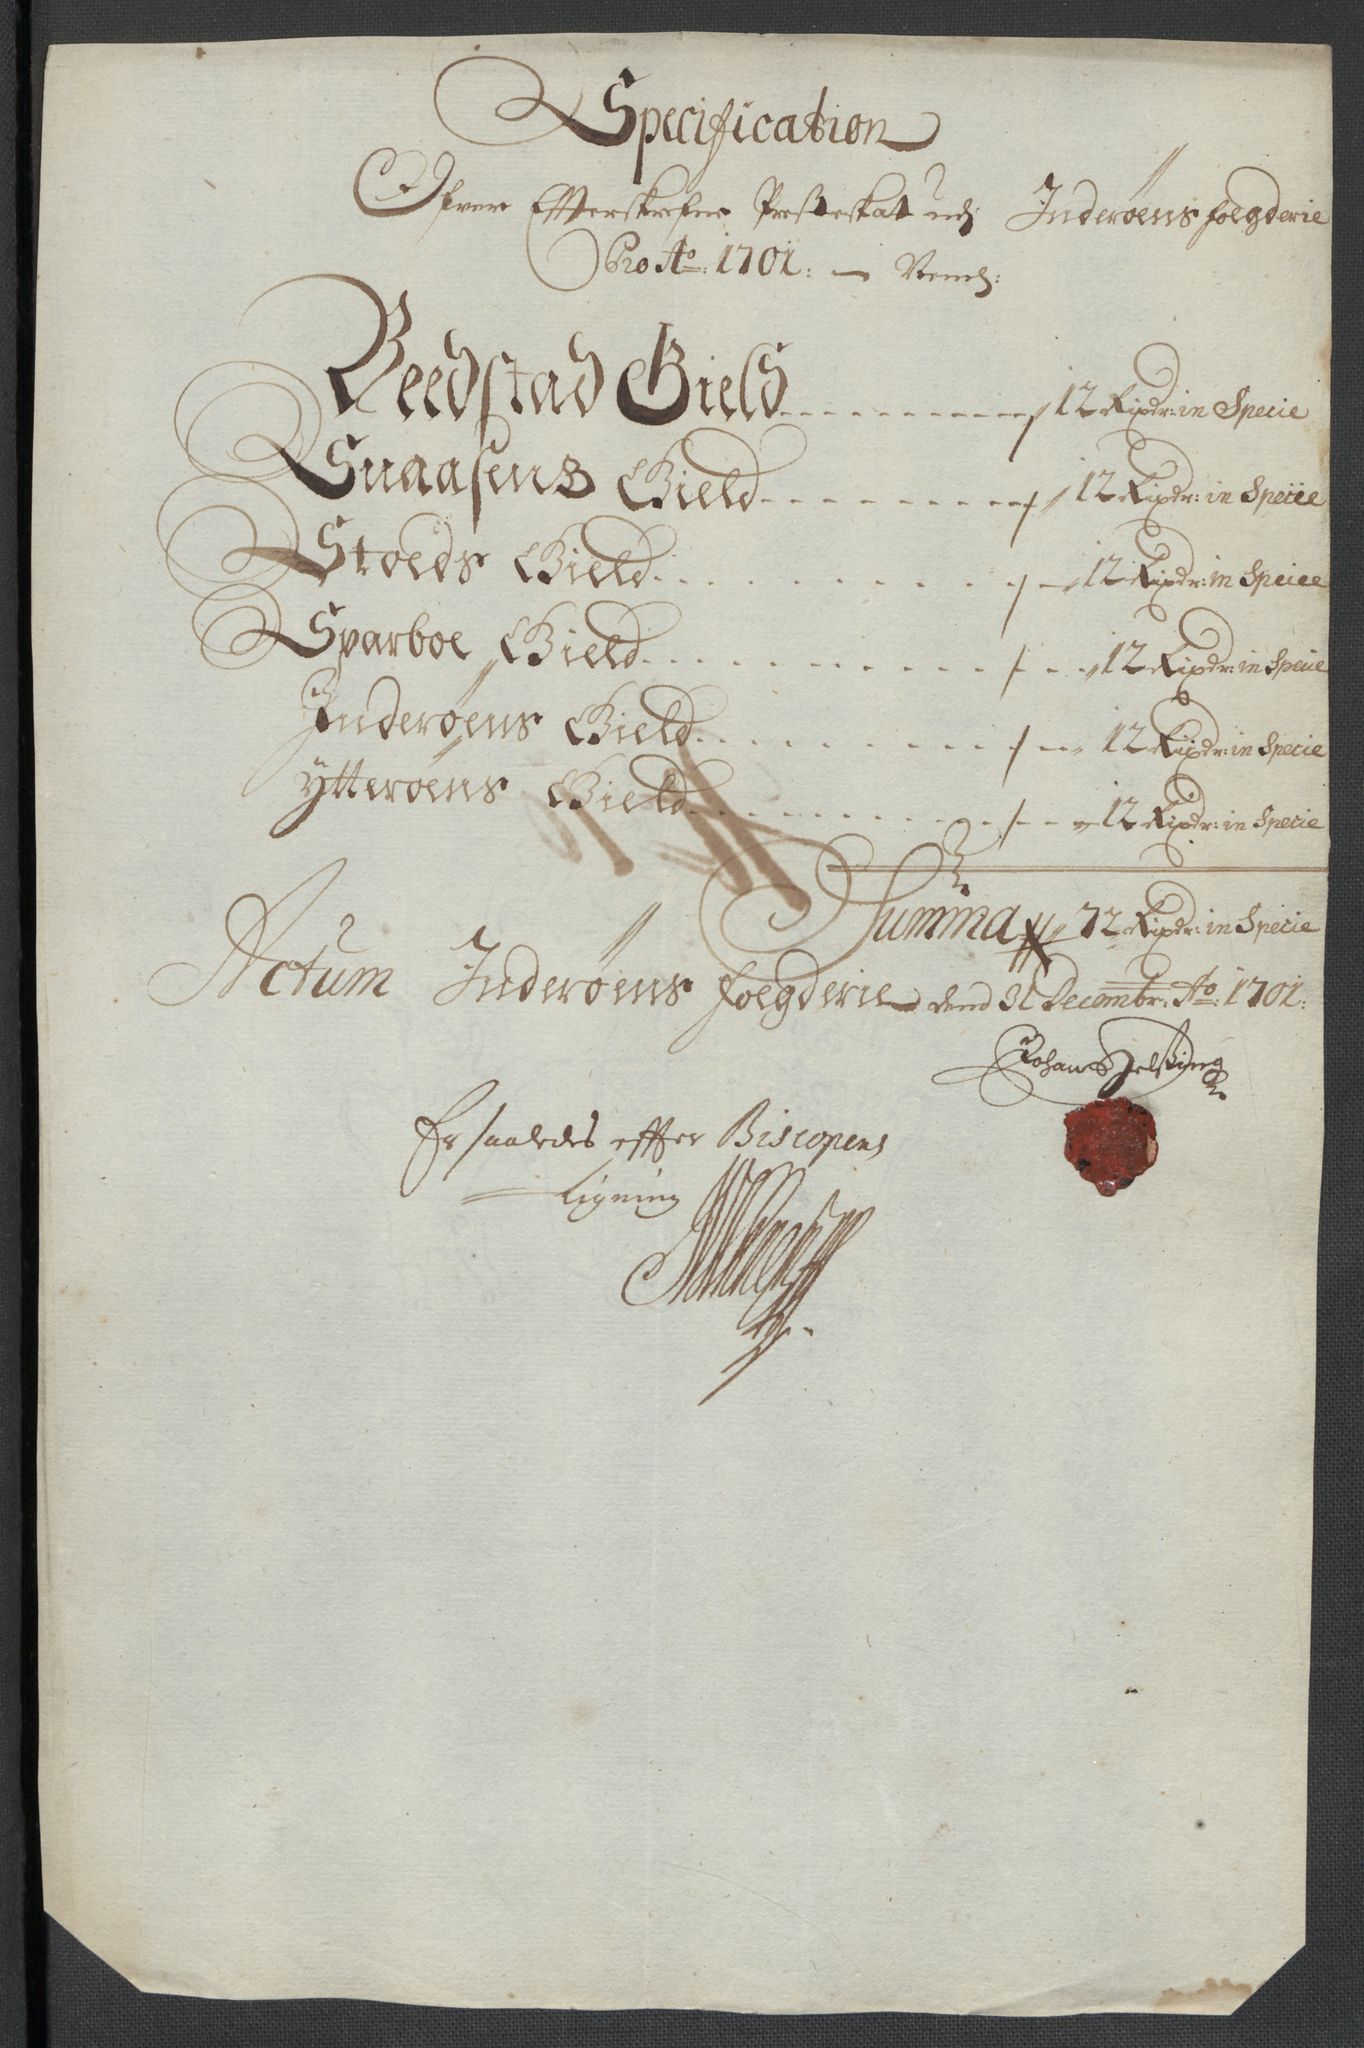 Specification
Ofver Effterskrefne Presteskat udj Inderøens foegderie
Pro Ao: 1701: — Nemlj:
Beedstad Gield 12 Rixdr: in Specie
Snaasens Gield 12 Rixdr: in Specie
Stoeds Gield 12 Rixdr: in Specie
Sparboe Gield 12 Rixdr: in Specie
Inderøens Gield 12 Rixdr: in Specie
Ytterøens Gield 12 Rixdr: in Specie
Summa 72 Rixdr: in Specie
Actum Inderøens foegderie dend 31 Decembr: Ao: 1701:
Johan
Er saaledes effter Biscopens
Ligning